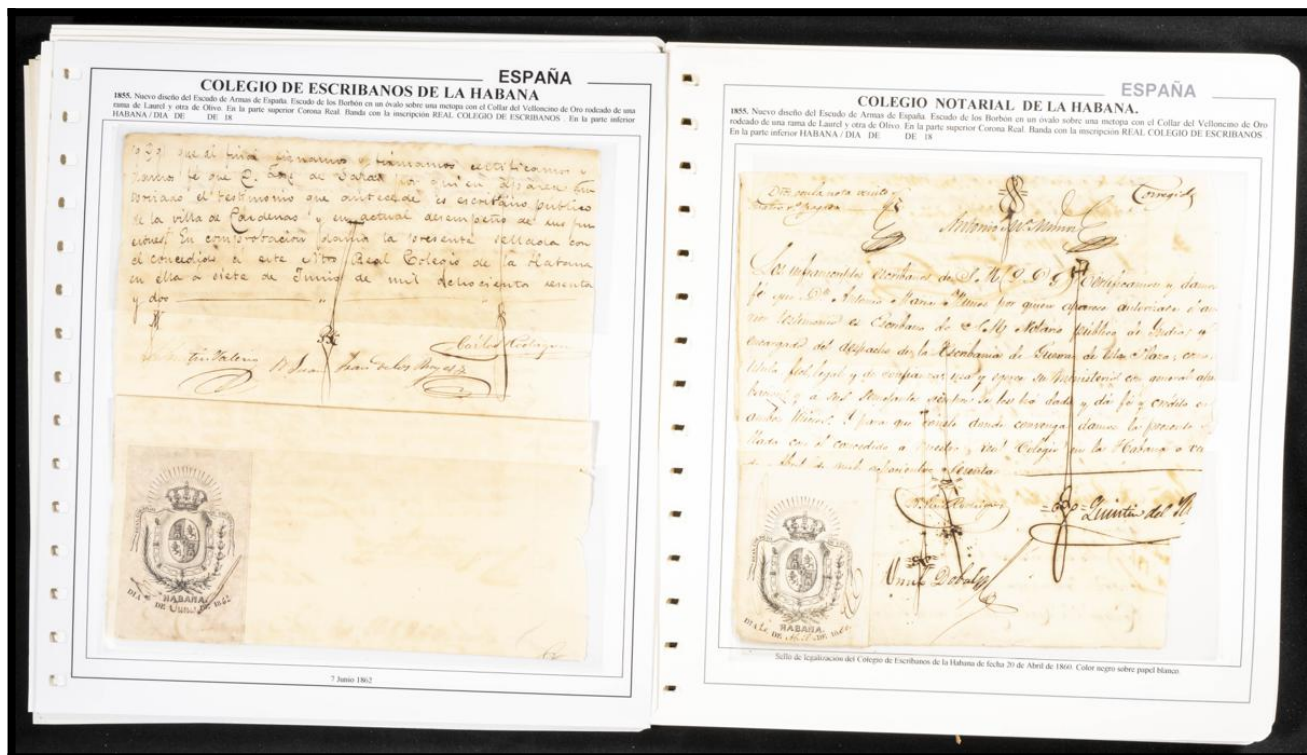 ESPAÑA
COLEGIO DE ESCRIBANOS DE LA HABANA
1855. Nuevo diseño del Escudo de Armas de España. Escudo de los Borbón en un óvalo sobre una metopa con el Collar del Velloncino de Oro rodeado de una
rama de Laurel y otra de Olivo. En la parte superior Corona Real. Banda con la inscripción REAL COLEGIO DE ESCRIBANOS . En la parte inferior
HABANA / DIA DE DE 18
que al final signamos y firmamos certificamos y
damos fé que D. José de por quien aparece au
torizado el testimonio que antecede es escribano publico
de la villa de Cárdenas y en actual desempeño de sus fun
ciones. En comprobacion damos la presente sellada con
el concedido a este Real Colegio de la Habana
en ella a siete de Junio de mil ochocientos sesenta
y dos
Valerio
Juan de los Reyes
Carlos
HABANA.
DIA DE Junio DE 1862
7 Junio 1862
ESPAÑA
COLEGIO NOTARIAL DE LA HABANA.
1855. Nuevo diseño del Escudo de Armas de España. Escudo de los Borbón en un óvalo sobre una metopa con el Collar del Velloncino de Oro
rodeado de una rama de Laurel y otra de Olivo. En la parte superior Corona Real. Banda con la inscripción REAL COLEGIO DE ESCRIBANOS
En la parte inferior HABANA / DIA DE DE 18
Antonio
Los infrascritos escribanos de S. M. certificamos y damos
fé que Dn. Antonio Maria Muñoz por quien aparece autorizado el an
testimonio es Escribano de S. M. Notario público de Indias y
encargado del despacho de la Escribania de Guerra de esta Plaza, como
titula fiel, legal y de confianza usa y ejerce su ministerio con general
y a sus semejantes siempre se les ha dado y da fé y crédito en
ambos Y para que conste donde convenga damos la presente
llada con el concedido a nuestro real Colegio en la Habana a
Abril de mil ochocientos sesenta
Quintin del
HABANA.
DIA DE Abril DE 1860
Sello de legalización del Colegio de Escribanos de la Habana de fecha 20 de Abril de 1860. Color negro sobre papel blanco.